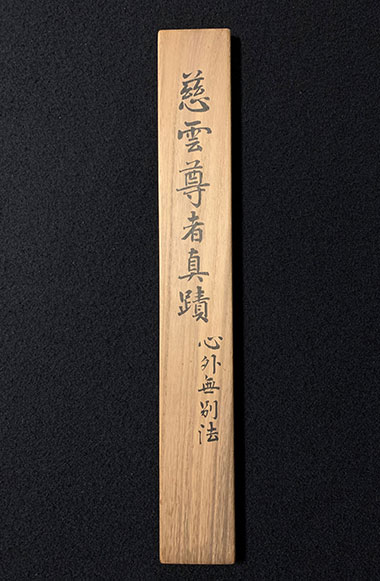 慈雲尊者真蹟
心外無別法